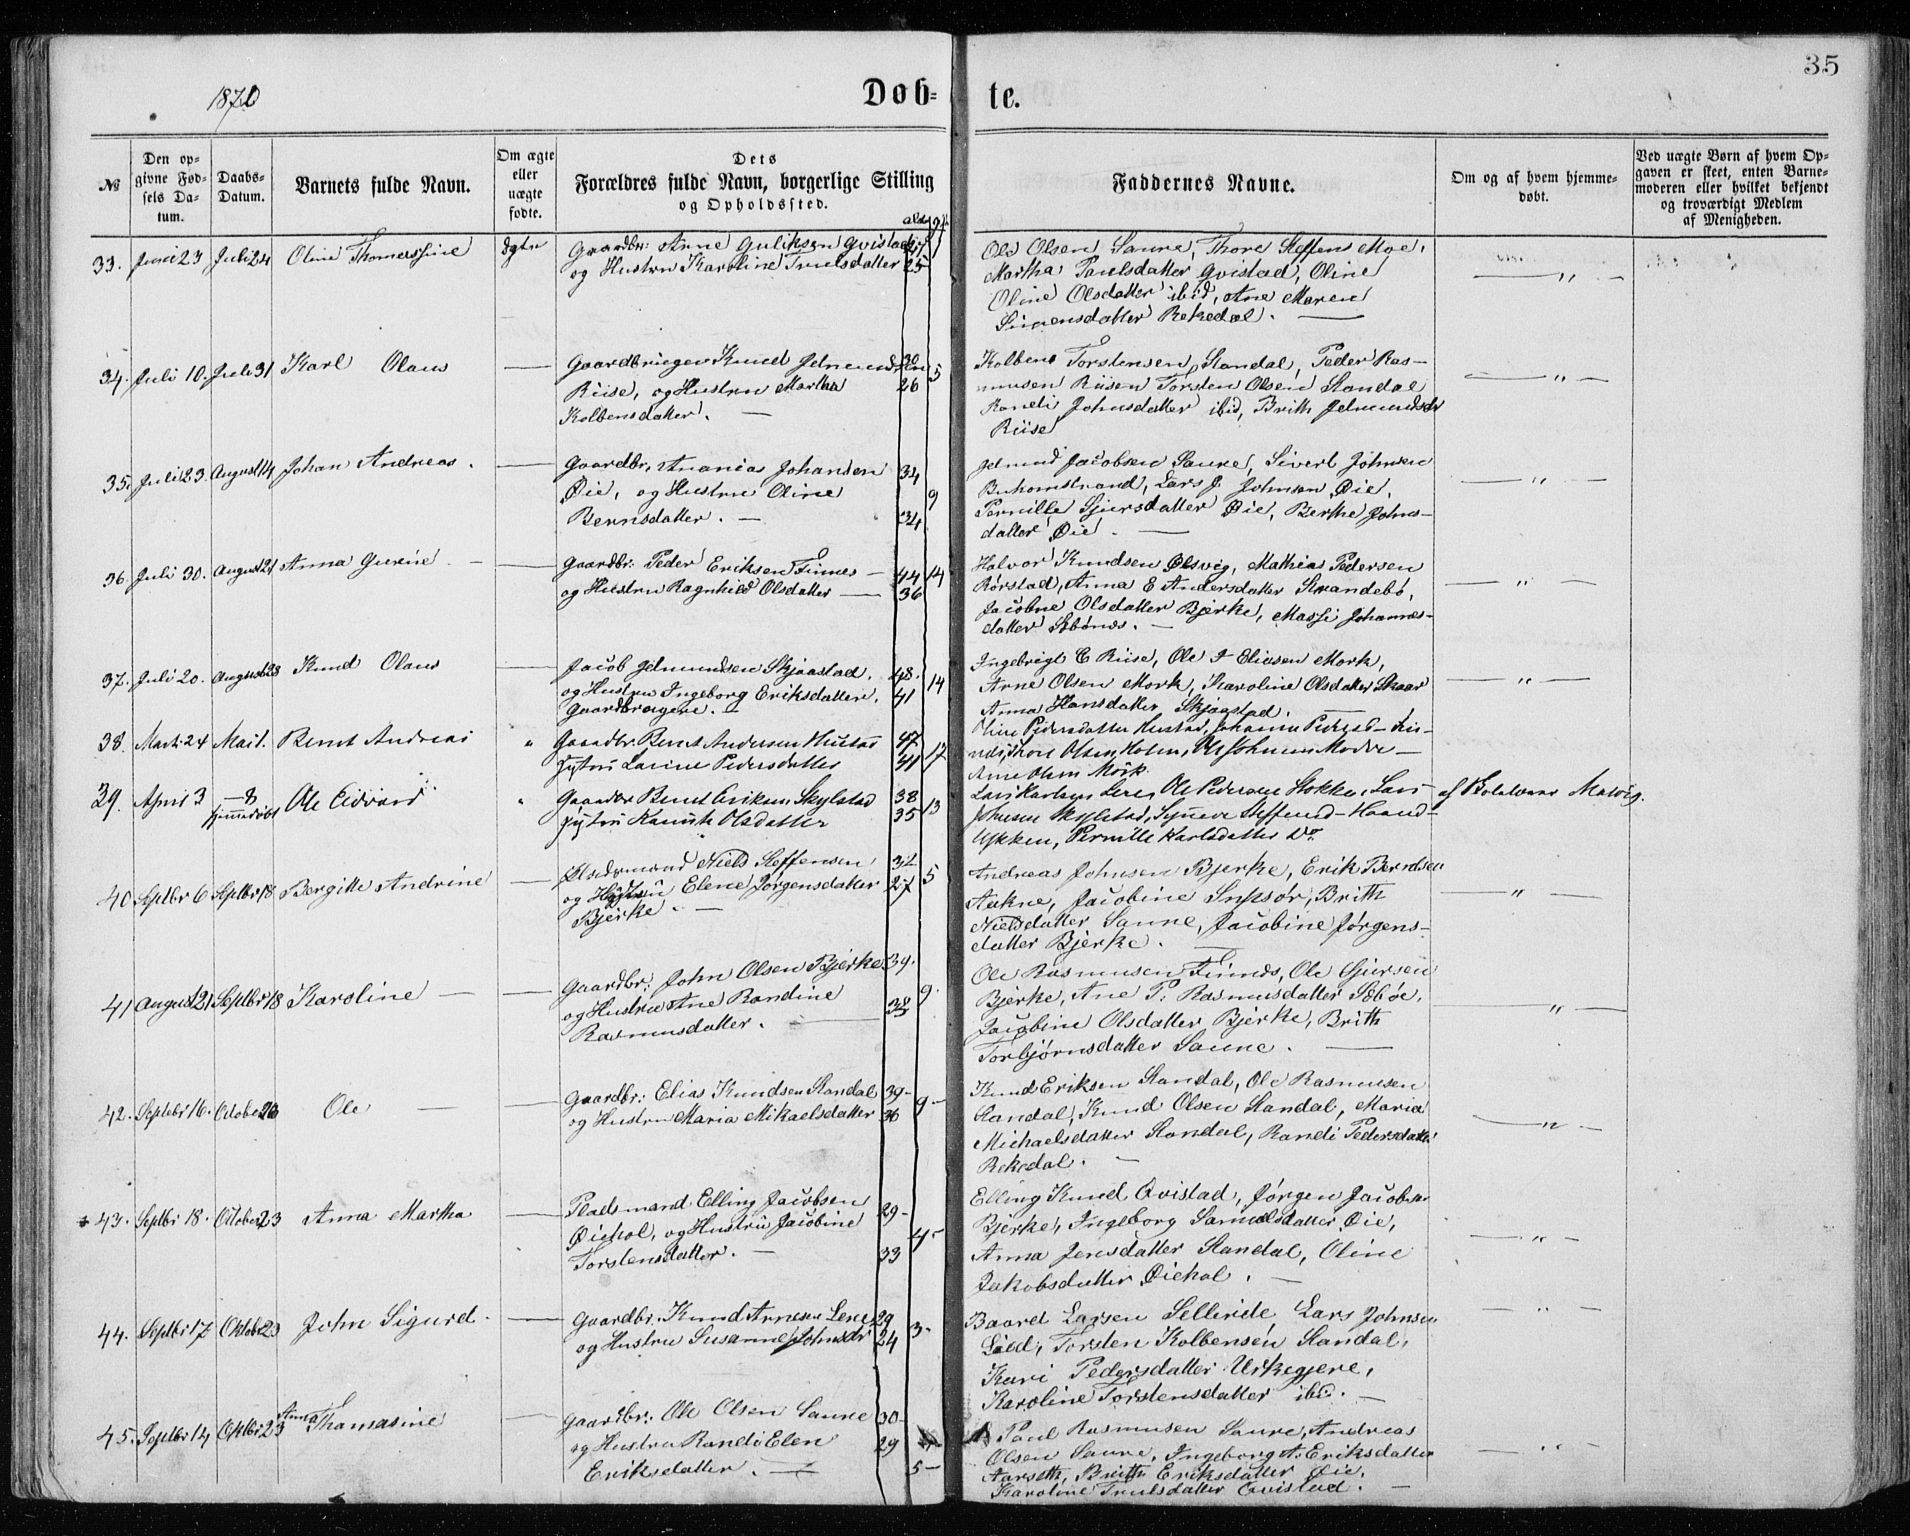 35
1870
Døb-
te.
№
Den op-
givne Fød-
sels Da-
tum.
Daabs-
Datum.
Barnets fulde Navn.
Om ægte
eller
uægte
fødte.
Dets
Forældres fulde Navn, borgerlige Stilling
og Opholdssted.
Faddernes Navne.
Om og af hvem hjemme-
døbt.
Ved uægte Børn af hvem Op-
gaven er skeet, enten Barne-
moderen eller hvilket bekjendt
og troværdigt Medlem
af Menigheden.
33. Juni 23 Juli 24 Oline Thomessine
Gaardbr: Arne Guliksen Qvistad
og Hustru Karoline Truulsdatter 25
Ole Olsen Saure, Thore Steffens Moe,
Martha Paulsdatter Qvistad, Oline
Oline Olsdatter ibid, Ane Maren
Simensdatter Rekedal.
34. Juli 10. Juli 31 Karl Olaus
Gaardbruger Knud Jelmundsen 30
Riise, og Hustru Martha 26 5
Kolbensdatter.
Kolben Torstensen Standal, Peder Ras-
musen Riisen Torsten Olsen Standal
Randi Johnsdatter ibid, Brith Jelmundsdr
Riise
35. Juli 23. August 14 Johan Andreas.
Gaardbr. Ananias Johansen 34
Øie, og Hustru Oline 9
Berntsdatter. 34
Jelmund Jacobsen Saure, Sivert Johnsen
Buholmstrand, Lars J. Johnsen Øie,
Pernille Sjursdatter Øie, Berthe Johns-
datter Øie.
36. Juli 30. August 21 Anna Gurine
Gaardbr: Peder Eriksen Finnes 44 14
og Hustru Ragnhild Olsdatter 36
Halvor Knudsen Ølsvig, Mathias Pedersen
Rørstad, Anna E Andersdatter Strandebø,
Jacobine Olsdatter Bjerke, Massi Johannes-
datter Sæbønes.
37. Juli 20. August 28 Knud Olaus
Jacob Jelmundsen Skjaastad. 48.
og Hustru Ingeborg Eriksdatter. 41 14
Gaardbrugere.
Ingebrigt E Riise, Ole I Eliasen Mork,
Arne Olsen Mork, Karoline Olsdatter Skaar
Anna Hansdatter Skjaastad.
38. Marts 24 Mai 1. Bernt Andreas
Gaardbr. Bernt Andersen Hustad 47 17
Hustru Larine Pedersdatter 41
Oline Pedersdatter Hustad, Johanne
Thore Olsen Holen, Ole Johnsen Modve
Arne Olsen Mørk.
39. April 3 Ole Edvard
hjemmedøbt
Gaardbr Bernt Eriksen Skylstad 38
Hustru Olsdatter 35 13
Lars Karlsen Lere, Ole Pedersen Stokke, Lars
Johnsen Skylstad, Synneve Steffensd-Haand-
Pernille Karlsdatter Do
af Matvig.
40. Septbr 6 Septbr 18 Bergitte Andrine
Pladsemand Niels Steffensen 32
og Hustru Elene Jørgensdatter 27 5
Bjerke.
Andreas Johnsen Bjerke, Erik Berndsen
Aakne, Jacobine Brith
Nielsdatter Saure, Jacobine Jørgens-
datter Bjerke.
41 August 21 Septbr 18 Karoline
Gaardbr: John Olsen Bjerke 39.
og Hustru Ane Randine 38 9.
Rasmusdatter.
Ole Rasmusen Finnes, Ole Sjursen
Bjerke, Ane P. Rasmusdatter Sæbøe,
Jacobine Olsdatter Bjerke, Brith
Torbjørnsdatter Saure.
42. Septebr 16. October 23 Ole
Gaardbr: Elias Knudsen Standal 39-
og Hustru Maria Mikaelsdatter 36 9-
Knud Eriksen Standal, Ole Rasmusen
Standal, Knud Olsen Standal, Maria
Michaelsdatter Standal, Randi Pedersdatter
Rekedal.
43. Septbr 18. October 23 Anna Martha
Pladsmand Elling Jacobsen 29-
Øiehol, og Hustru Jacobine 4-
Torstensdatter. 33
Elling Knud Qvistad, Jørgen Jacobsen
Bjerke, Ingeborg Samuelsdatter Øie,
Anna Jensdatter Standal, Oline
Jakobsdatter Øiehol.
44. Septbr 17 Oktober 23 John Sigurd.
Gaardbr. Knud Arnesen Lere 29
og Hustru Susanne Johnsdr 24 3-
Baard Larsen Sellereide, Lars Johnsen
Torsten Kolbensen Standal,
Kari Pedersdatter Urkegjere,
Karoline Torstensdatter ibd.
45. Septbr 14 Oktbr 23 Anna Thomasine
Gaardbr: Ole Olsen Saure 30-
og Hustru Randi Elen 29
Eriksdatter. 5-
Paul Rasmusen Saure, Andreas
Olsen Saure, Ingeborg A. Eriksdatter
Aarseth, Brithe Eriksdatter Øie,
Karoline Truulsdatter Qvistad.